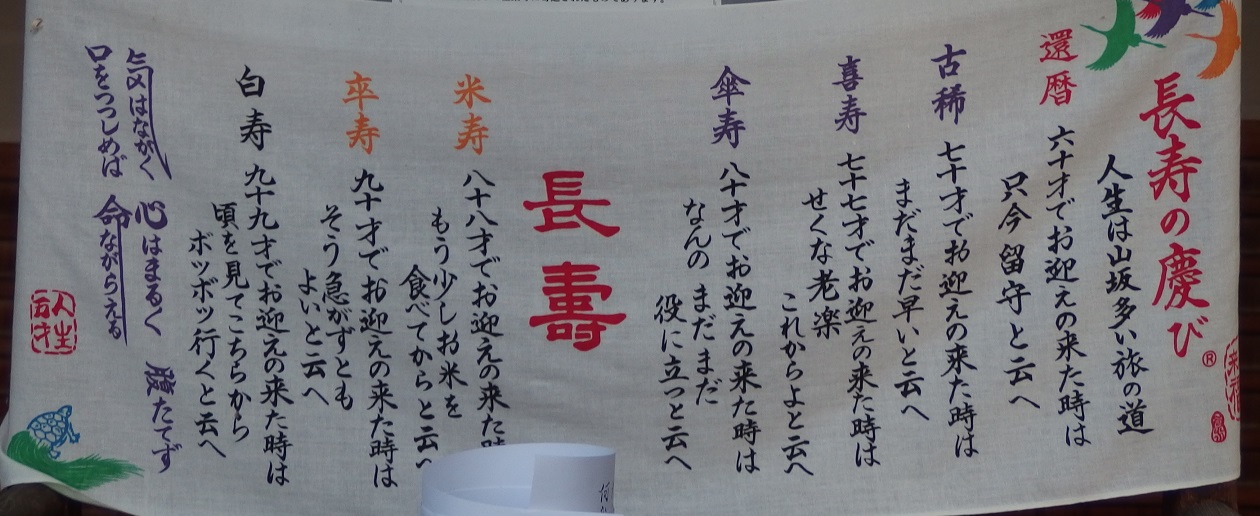 長寿の慶び
®
人生は山坂多い旅の道
還暦
六十才でお迎えの来た時は
只今留守と云へ
古稀
七十才でお迎えの来た時は
まだまだ早いと云へ
喜寿
七十七才でお迎えの来た時は
せくな老楽
これからよと云へ
傘寿
八十才でお迎えの来た時は
なんのまだまだ
役に立つと云へ
長壽
米寿
八十八才でお迎えの来た時
もう少しお米を
食べてからと云へ
卒寿
九十才でお迎えの来た時は
そう急がずとも
よいと云へ
白寿
九十九才でお迎えの来た時は
頃を見てこちらから
ボツボツ行くと云へ
気はながく
心はまるく
腹たてず
口をつつしめば
命ながらえる
人生